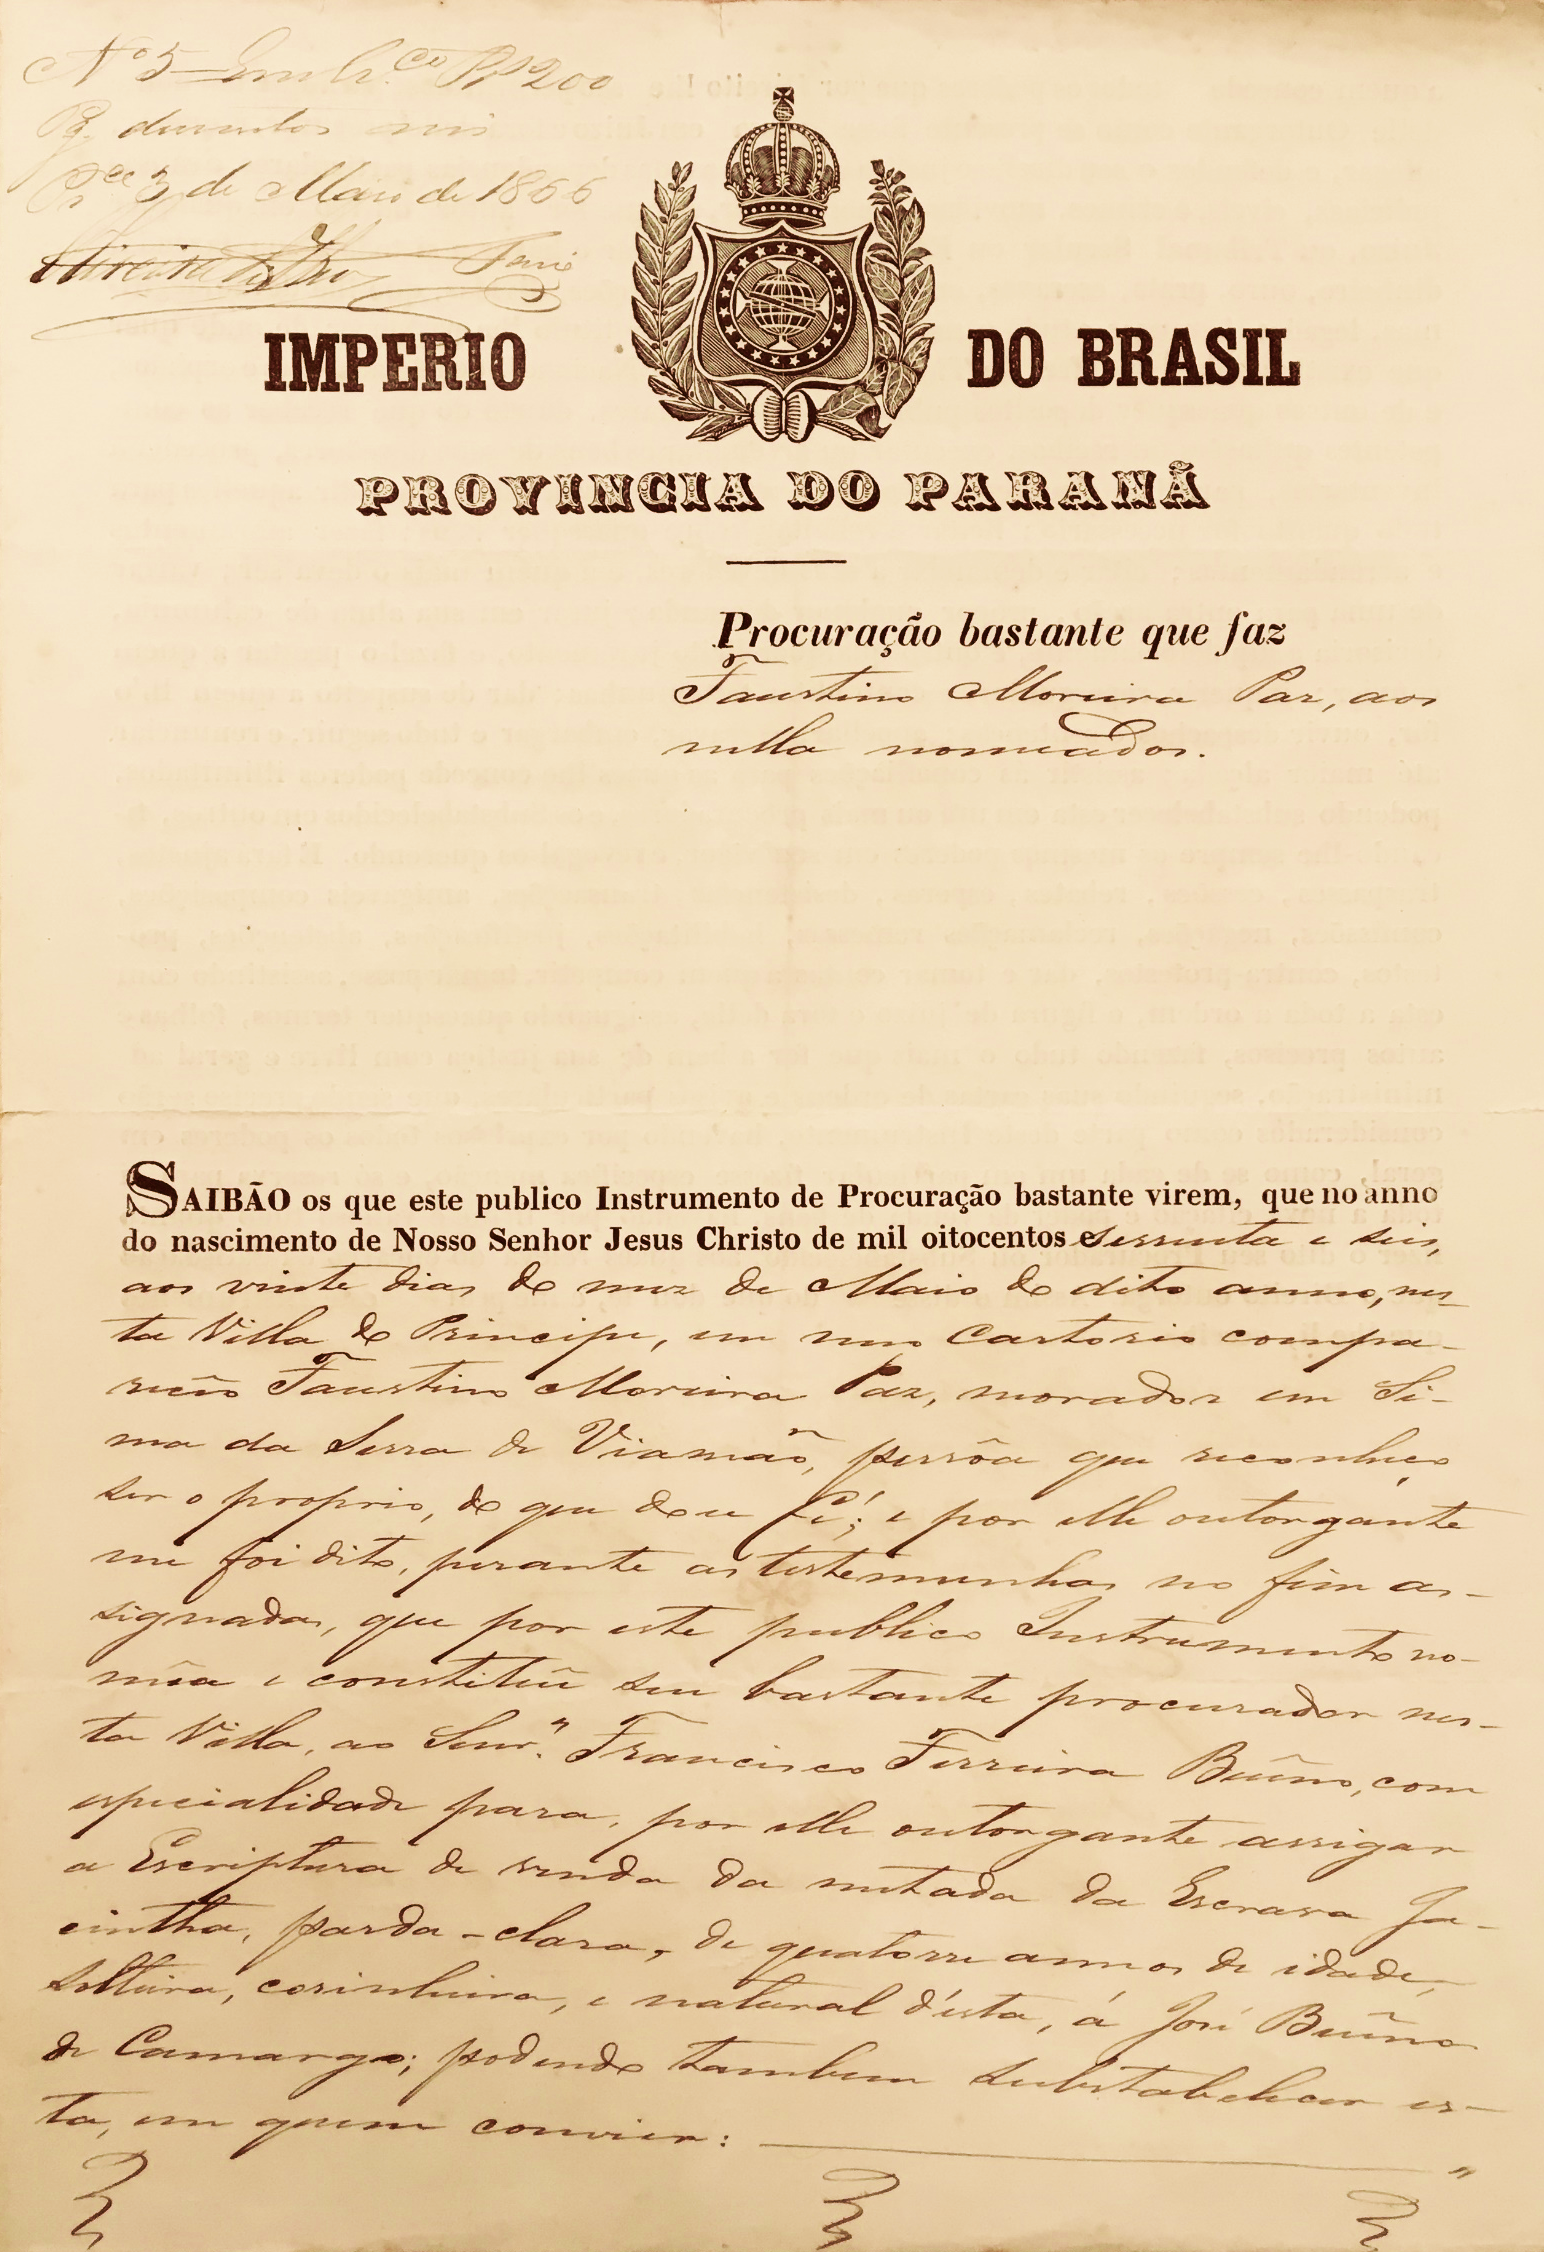 Nº 5 Rs 200
Pg. duzentos reis
Pr.ce 3 de Maio de 1866
IMPERIO DO BRASIL
PROVINCIA DO PARANÃ
Procuração bastante que faz
Faustino Moreira Paz, aos
nella nomeados.
SAIBÃO os que este publico Instrumento de Procuração bastante virem, que no anno
do nascimento de Nosso Senhor Jesus Christo de mil oitocentos e sessenta e seis,
aos vinte dias do mez de Maio do dito anno, nes-
ta Villa do Principe, em meu Cartorio compa-
receo Faustino Moreira Paz, morador em Si-
ma da Serra de Viamão, pessôa que reconheço
ser o proprio, do que dou fé; e por elle outorgante
me foi dito, perante as testemunhas no fim as-
signadas, que por este publico Instrumento no-
mêa e constitúe seu bastante procurador nes-
ta Villa, ao Senr. Francisco Ferreira Buêno, com
especialidade para, por elle outorgante assigar
a Escriptura de venda da metade da Escrava Ja-
cintha, parda-clara, de quatorze annos de idade,
solteira, cosinheira, e natural d'esta, á José Buêno
de Camargo; podendo tambem substabelecer es-
ta, em quem convier: "